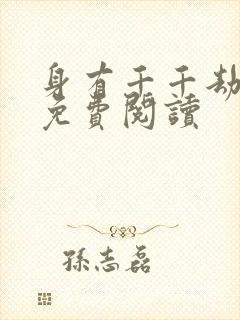 身有千千劫
免費閱讀
孫志磊